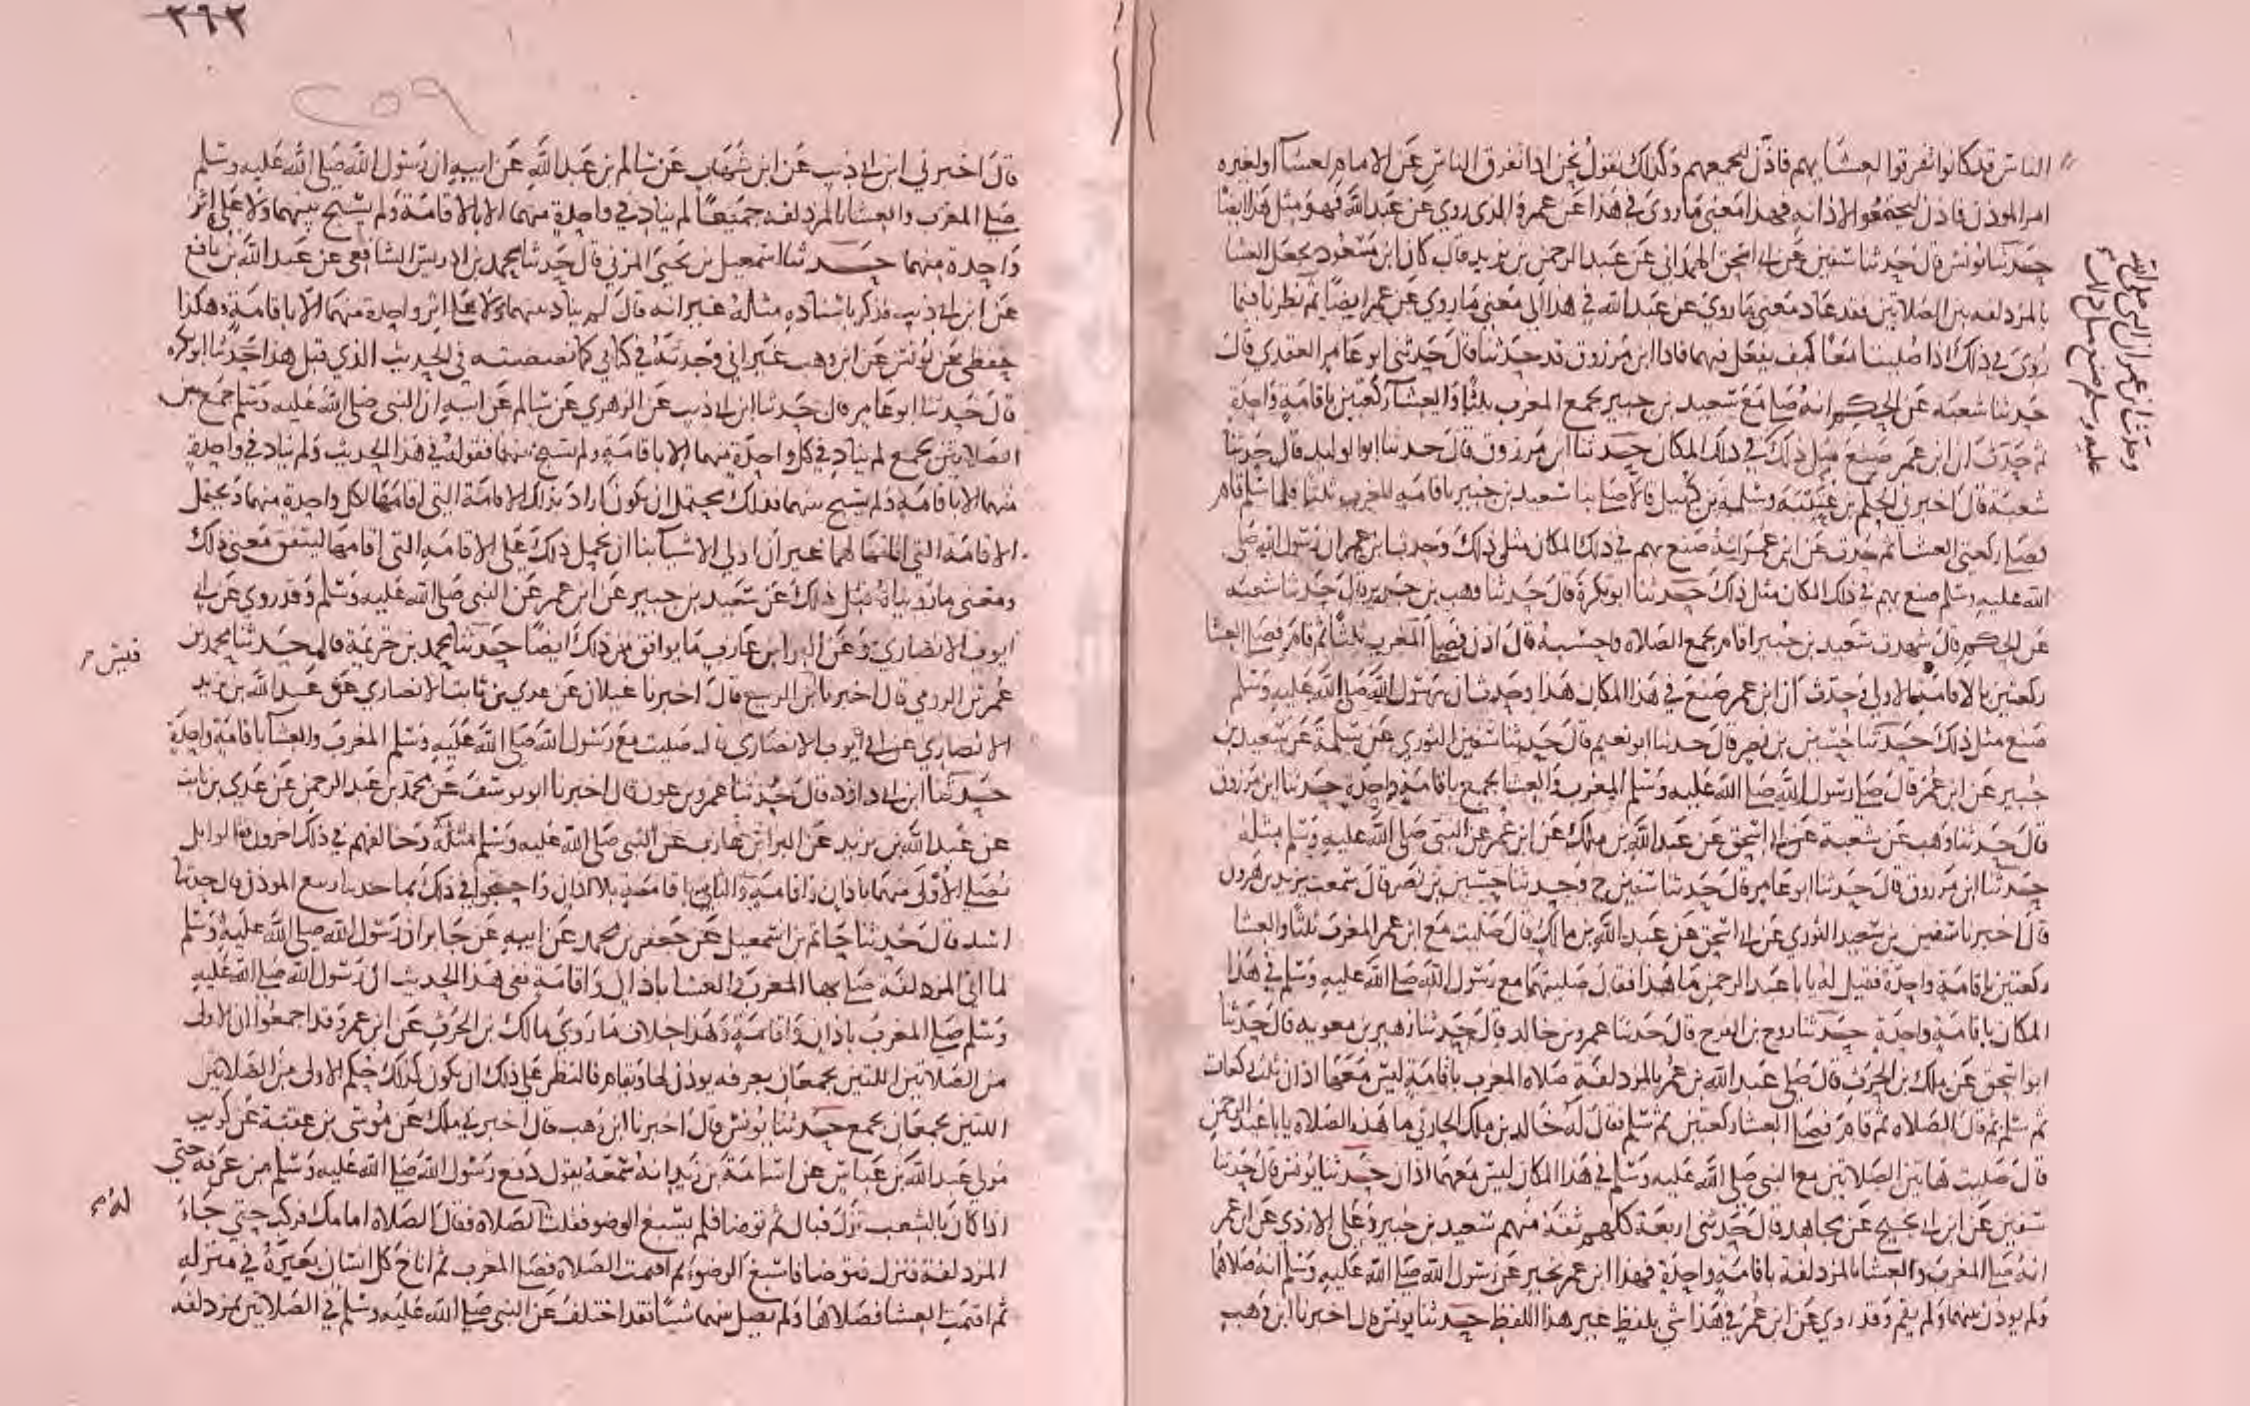 الناس قد كانوا تفرقوا لعشايهم فاذن ليجمعهم وكذلك نقول نحن اذا تفرق الناس عن الامام لعشآ او لغيره
امر الموذن فاذن ليجتمعوا لاذانه فهذا معنى ما روى في هذا عن عمر والذي روي عن عبد الله فهو مثل هذا ايضا
حدثنا يونس قال حدثنا سفين عن ابي اسحق الهمداني عن عبد الرحمن بن يزيد قال كان ابن مسعود يجعل العشا
بالمزدلفه بين الصلاتين فقد عاد معنى ما روى عن عبد الله في هذا الى معنى ما روي عن عمر ايضا ثم نظرنا فيما
روى في ذلك اذا صليتا معا كيف يفعل فيهما فاذا ابن مرزوق قد حدثنا قال حدثني ابو عامر العقدي قال
حدثنا شعبه عن الحكم انه صلى مع سعيد بن جبير بجمع المغرب ثلثا والعشآ ركعتين باقامة واحدة
ثم حدث ان ابن عمر صنع مثل ذلك في ذلك المكان حدثنا ابن مرزوق قال حدثنا ابو الوليد قال حدثنا
شعبة قال اخبرني الحكم بن عتيبة وسلمة بن كهيل قالا صلى بنا سعيد بن جبير باقامة المغرب ثلثا فلما سلم قام
فصلى ركعتي العشا ثم حدث عن ابن عمر انه صنع بهم في ذلك المكان مثل ذلك وحدثنا ابن عمر ان رسول الله صلى
الله عليه وسلم صنع بهم في ذلك المكان مثل ذلك حدثنا ابو بكرة قال حدثنا وهب بن جرير قال حدثنا شعبه
عن الحكم قال شهدت سعيد بن جبير اقام بجمع الصلاة واحسبه قال اذن فصلى المغرب ثلثا ثم قام فصلى العشا
ركعتين بالاقامة الاولى وحدث ان ابن عمر صنع في هذا المكان هذا وحدث ان رسول الله صلى الله عليه وسلم
صنع مثل ذلك حدثنا حسين بن نصر قال حدثنا ابو نعيم قال حدثنا سفين الثوري عن سلمة عن سعيد بن
جبير عن ابن عمر قال صلى رسول الله صلى الله عليه وسلم المغرب والعشا بجمع باقامة واحدة حدثنا ابن مرزوق
قال حدثنا وهب عن شعبة عن ابي اسحق عن عبد الله بن ملك عن ابن عمر عن النبي صلى الله عليه وسلم مثله
حدثنا ابن مرزوق قال حدثنا ابو عامر قال حدثنا سفين ح وحدثنا حسين بن نصر قال سمعت يزيد بن هرون
قال اخبرنا سفين بن سعيد الثوري عن ابي اسحق عن عبد الله بن مالك قال صليت مع ابن عمر المغرب ثلثا والعشا
ركعتين باقامة واحدة فقيل له يابا عبد الرحمن ما هذا فقال صليتهما مع رسول الله صلى الله عليه وسلم في هذا
المكان باقامة واحدة حدثنا روح بن الفرج قال حدثنا عمرو بن خالد قال حدثنا زهير بن معويه قال حدثنا
ابو اسحق عن ملك بن الحرث قال صلى عبد الله بن عمر بالمزدلفة صلاة المغرب باقامة ليس معها اذان ثلث ركعات
ثم سلم ثم قال الصلاه ثم قام فصلى العشا ركعتين ثم سلم فقال له خالد بن ملك الحارثي ما هذه الصلاه يابا عبد الرحمن
قال صليت هاتين الصلاتين مع النبي صلى الله عليه وسلم في هذا المكان ليس معهما اذان حدثنا يونس قال حدثنا
سفين عن ابن ابي نجيح عن مجاهد قال حدثني اربعة كلهم ثقة منهم سعيد بن جبير وعلي الازدي عن ابن عمر
انه صلى المغرب والعشا بالمزدلفة باقامة واحدة فهذا ابن عمر يخبر عن رسول الله صلى الله عليه وسلم انه صلاهما
ولم يوذن بينهما ولم يقم وقد روي عن ابن عمر في هذا شي بلفظ غير هذا اللفظ حدثنا يونس قال اخبرنا ابن وهب
وحدث ابن عمر ان النبي صلى الله
عليه وسلم صنع مثل ذلك
٢٦٢
٢٥٩
قال اخبرني ابن ابي ذيب عن ابن شهاب عن سالم بن عبد الله عن ابيه ان رسول الله صلى الله عليه وسلم
صلى المغرب والعشا بالمزدلفه جميعا لم يناد في واحدة منهما الا بالاقامة ولم يسبح بينهما ولا على اثر
واحدة منهما حدثنا اسمعيل بن يحيى المزني قال حدثنا محمد بن ادريس الشافعي عن عبد الله بن نافع
عن ابن ابي ذيب فذكر باسناده مثله غير انه قال لم يناد بينهما ولا على اثر واحدة منهما الا باقامة وهكذا
حفظي عن يونس عن ابن وهب غير اني وجدته في كتابي كما نصصته في الحديث الذي قبل هذا حدثنا ابو بكره
قال حدثنا ابو عامر قال حدثنا ابن ابي ذيب عن الزهري عن سالم عن ابيه ان النبي صلى الله عليه وسلم جمع بين
الصلاتين بجمع لم يناد في كل واحدة منهما الا باقامة ولم يسبح بينهما فقوله في هذا الحديث ولم يناد في واحدة
منهما الا باقامة ولم يسبح بينهما فذلك يحتمل ان يكون اراد بذلك الاقامة التي اقامها لكل واحدة منهما ويحتمل
الاقامة التي اقامها لهما غير ان اولى الاشيآ بنا ان يحمل ذلك على الاقامة التي اقامها ليتفق معنى ذلك
ومعنى ما رويناه قبل ذلك عن سعيد بن جبير عن ابن عمر عن النبي صلى الله عليه وسلم وقد روي عن ابي
ايوب الانصاري وعن البرا بن عازب ما يوافق من ذلك ايضا حدثنا محمد بن خزيمة قال حدثنا محمد بن
عمر بن الرومي قال اخبرنا ابن الربيع قال اخبرنا غيلان عن عدي بن ثابت الانصاري عن عبد الله بن يزيد
قيس
الانصاري عن ابي ايوب الانصاري قال صليت مع رسول الله صلى الله عليه وسلم المغرب والعشا باقامة واحدة
حدثنا ابن ابي داود قال حدثنا عمرو بن عون قال اخبرنا ابو يوسف عن محمد بن عبد الرحمن عن عدي بن ثابت
عن عبد الله بن يزيد عن البرا بن عازب عن النبي صلى الله عليه وسلم مثله وخالفهم في ذلك اخرون فقالوا بل
نصلي الاولى منهما باذان واقامة والثانية باقامة بلا اذان واحتجوا في ذلك بما حدثنا ربيع الموذن قال حدثنا
اسد قال حدثنا حاتم بن اسمعيل عن جعفر بن محمد عن ابيه عن جابر ان رسول الله صلى الله عليه وسلم
لما اتى المزدلفة صلى بها المغرب والعشا باذان واقامة ففي هذا الحديث ان رسول الله صلى الله عليه
وسلم صلى المغرب باذان واقامة وهذا خلاف ما روى مالك بن الحرث عن ابن عمر وقد اجمعوا ان الاولى
من الصلاتين اللتين يجمعان بعرفه يوذن لها ويقام فالنظر على ذلك ان يكون كذلك حكم الاولى من الصلاتين
اللتين يجمعان بجمع حدثنا يونس قال اخبرنا ابن وهب قال اخبرني ملك عن موسى بن عقبة عن كريب
مولى عبد الله بن عباس عن اسامة بن زيد انه سمعه يقول دفع رسول الله صلى الله عليه وسلم من عرفه حتى
اذا كان بالشعب نزل فبال ثم توضا فلم يسبغ الوضو فقلت الصلاه فقال الصلاة امامك فركب حتى جاء
له
المزدلفة فنزل فتوضا فاسبغ الوضوء ثم اقيمت الصلاه فصلى المغرب ثم اناخ كل انسان بعيره في منزله
ثم اقيمت العشا فصلاها ولم يصل بينهما شيا فقد اختلف عن النبي صلى الله عليه وسلم في الصلاتين بمزدلفه